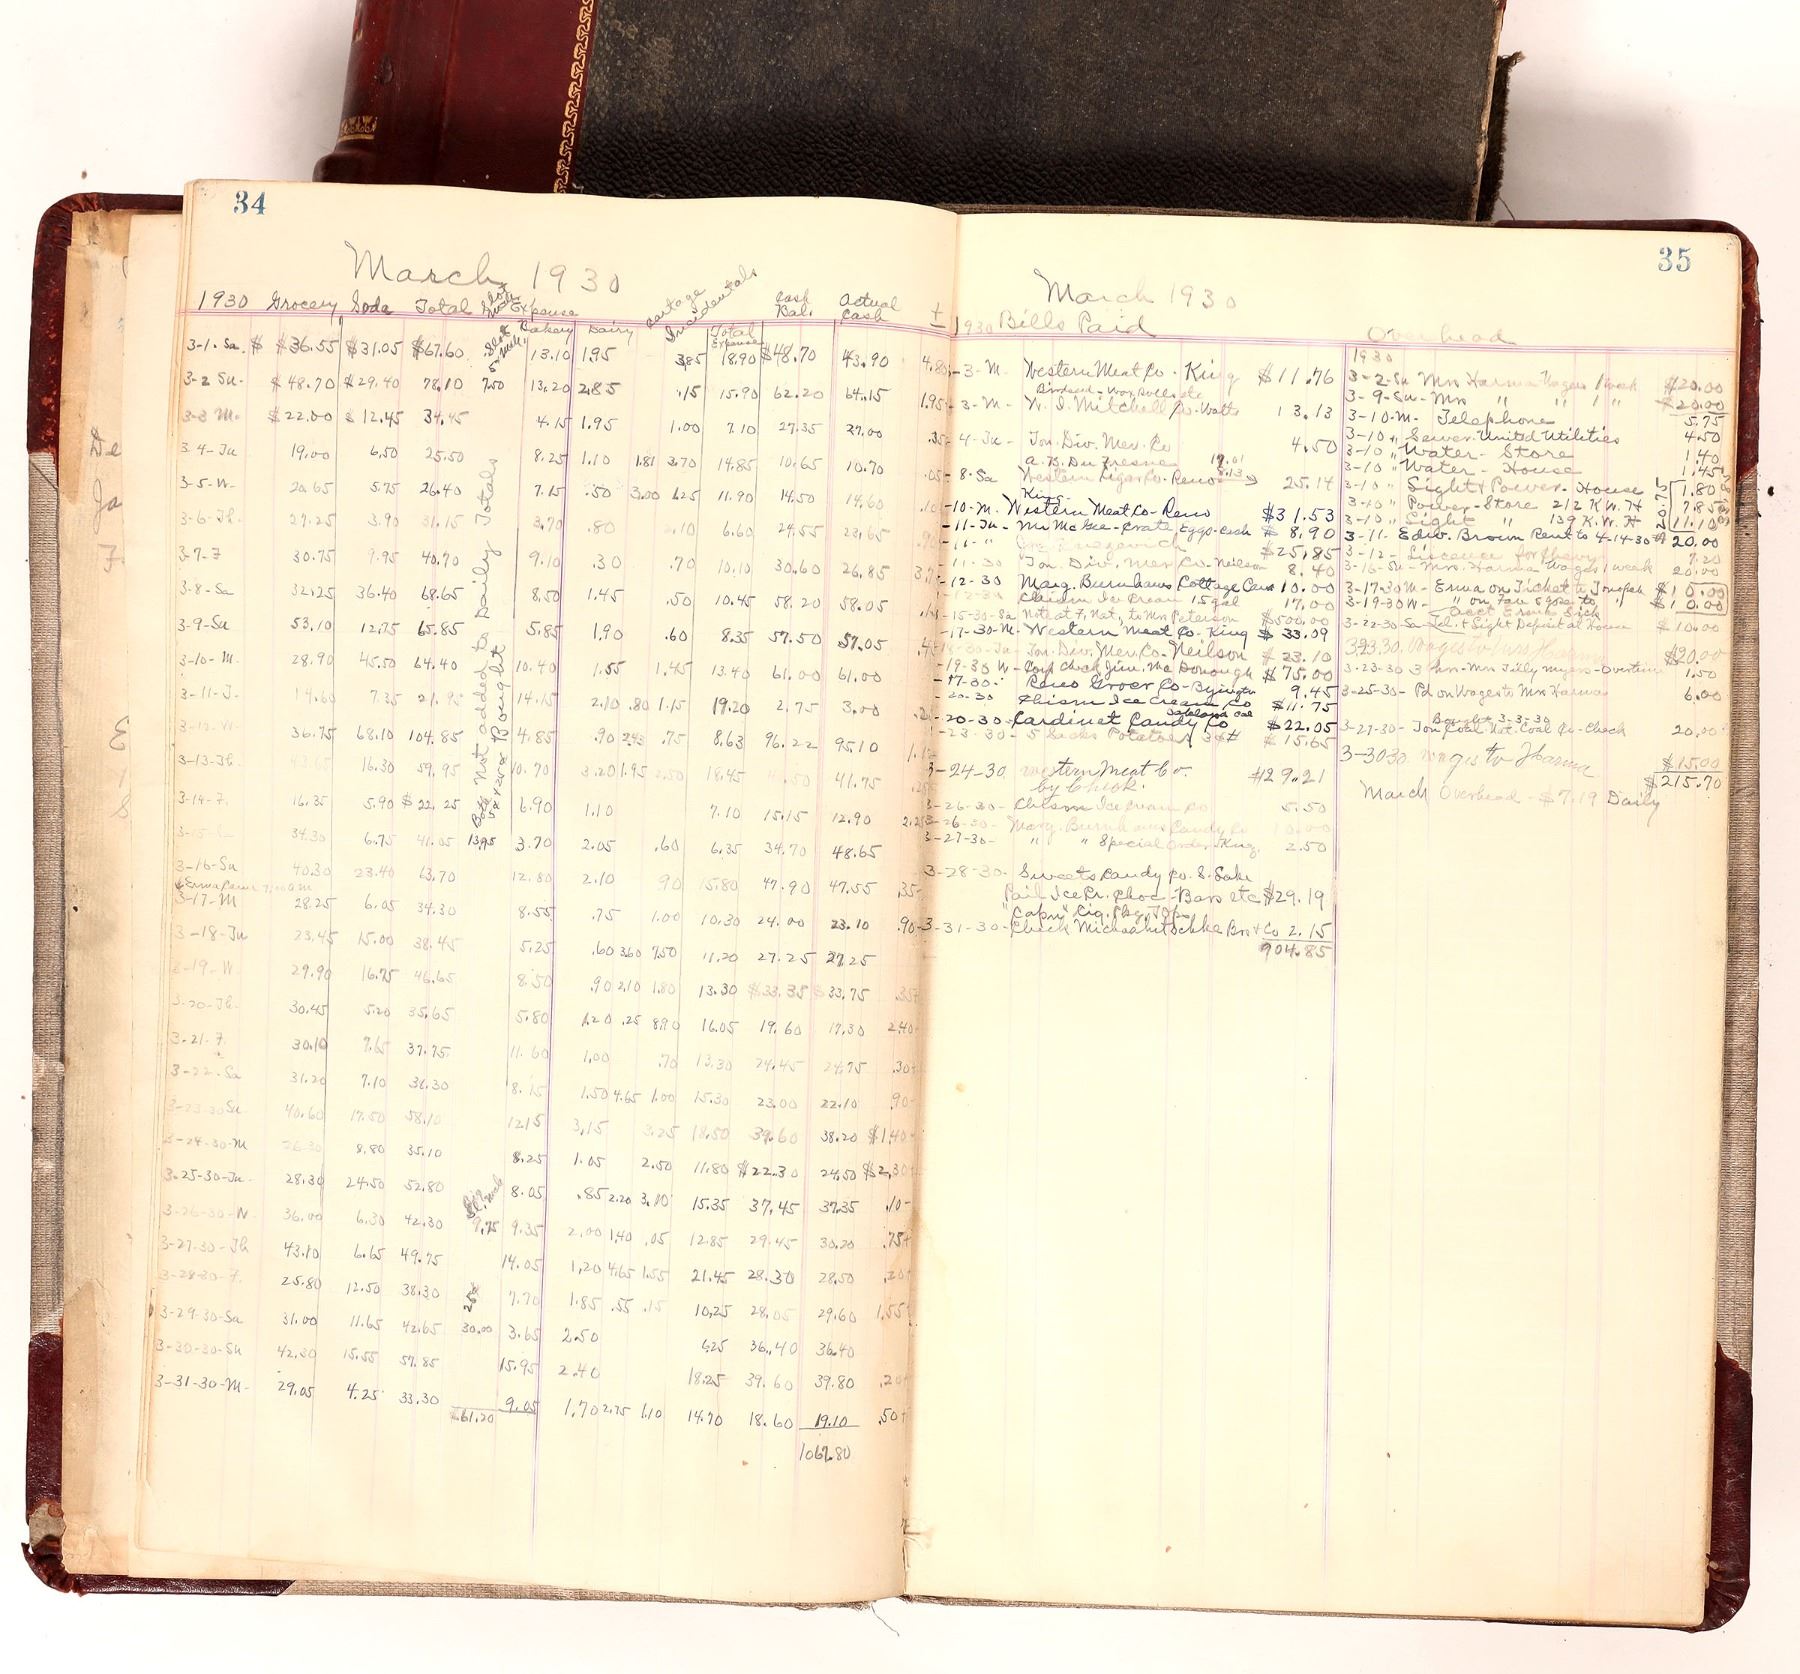 34
March 1930
1930 Grocery Soda Total Slot Mch Expense Bakery Dairy Cartage Incidentals Total Expense Cash Bal. Actual Cash ±
3-1-Sa $ $36.55 $31.05 $67.60 13.10 1.95 3.85 18.90 $48.70 43.90 4.80
3-2 Su- $48.70 $29.40 78.10 7.50 13.20 2.85 .15 15.90 62.20 64.15 1.95
3-3 M- $22.00 $12.45 34.45 4.15 1.95 1.00 7.10 27.35 27.00 .35
3-4-Tu 19.00 6.50 25.50 8.25 1.10 1.81 3.70 14.85 10.65 10.70 .05
3-5-W- 20.65 5.75 26.40 7.15 .50 3.00 1.25 11.90 14.50 14.60 .10
3-6-Th. 27.25 3.90 31.15 3.70 .80 2.10 6.60 24.55 23.65 .90
3-7-F 30.75 9.95 40.70 9.10 .30 .70 10.10 30.60 26.85
3-8-Sa 32.25 36.40 68.65 8.50 1.45 .50 10.45 58.20 58.05
3-9-Su 53.10 12.75 65.85 5.85 1.90 .60 8.35 57.50 57.05
3-10-M. 28.90 45.50 64.40 10.40 1.55 1.45 13.40 61.00 61.00
3-11-T- 14.60 7.35 21.95 14.15 2.10 .80 1.15 19.20 2.75 3.00
3-12-W- 36.75 68.10 104.85 4.85 .90 2.43 .75 8.63 96.22 95.10
3-13-Th. 43.65 16.30 59.95 10.70 3.20 1.95 2.50 18.45 41.75
3-14-F. 16.35 5.90 $22.25 6.90 1.10 7.10 15.15 12.90 2.25
3-15-Sa 34.30 6.75 41.05 13.95 3.70 2.05 .60 6.35 34.70 48.65
3-16-Su 40.30 23.40 63.70 12.80 2.10 90 15.80 47.90 47.55 .35-
3-17-M 28.25 6.05 34.30 8.55 .75 1.00 10.30 24.00 23.10 .90-
3-18-Tu 23.45 15.00 38.45 5.25 .60 3.60 7.50 11.20 27.25 27.25
3-19-W. 29.90 16.75 46.65 8.50 .90 2.10 1.80 13.30 $33.35 $33.75
3-20-Th. 30.45 5.20 35.65 5.80 1.20 .25 8.90 16.05 19.60 17.30 2.40-
3-21-F. 30.10 7.65 37.75 11.60 1.00 .70 13.30 24.45 24.75 .30+
3-22-Sa 31.20 7.10 38.30 8.15 1.50 4.65 1.00 15.30 23.00 22.10 .90-
3-23-30Su 40.60 17.50 58.10 12.15 3.15 3.25 18.50 39.60 38.20 $1.40-
3-24-30-M 26.30 8.80 35.10 8.25 1.05 2.50 11.80 $22.30 24.50 $2.30+
3-25-30-Tu- 28.30 24.50 52.80 8.05 .85 2.20 3.10 15.35 37.45 37.35 .10-
3-26-30-W 36.00 6.30 42.30 9.75 9.35 2.00 1.40 .05 12.85 29.45 30.20 .75+
3-27-30-Th 43.10 6.65 49.75 14.05 1.20 4.65 1.55 21.45 28.30 28.50 .20+
3-28-30-F. 25.80 12.50 38.30 7.70 1.85 .55 .15 10.25 28.05 29.60 1.55+
3-29-30-Sa 31.00 11.65 42.65 30.00 3.65 2.50 6.25 36.40 36.40
3-30-30-Su 42.30 15.55 57.85 15.95 2.40 18.25 39.60 39.80 .20+
3-31-30-M- 29.05 4.25 33.30 9.05 1.70 2.75 1.10 14.70 18.60 19.10 .50+
$61.20
1067.80
Both Not added to Daily Totals
Bought
35
March 1930
1930 Bills Paid
3-M- Western Meat Co - King $11.76
3-M- W. I. Mitchell Co. Watts 13.13
4-Tu- Ton. Div. Mer. Co 4.50
A. B. Du Fresne 17.01
8-Sa Western Cigar Co. Reno 8.13 25.14
King-
10-M. Western Meat Co-Reno $31.53
-11-Tu- Mr McGee-Crate Eggs-cash $8.90
-11-" $25.85
-11-30 Ton. Div. Mer. Co-Neilson 8.40
-12-30 Marg. Burnhaws Cottage Can 10.00
-12-30 Chism Ice Cream 15 gal 17.00
-15-30-Sa Note at F. Nat. to Mrs Peterson $500.00
-17-30-M. Western Meat Co-King $33.09
-18-30-Tu- Ton. Div. Mer. Co. Neilson $23.10
-19-30 W- Coop check Jim. Mc Donough $75.00
-17-30- Reno Grocer Co-Byington 9.45
-20-30 Chism Ice Cream Co $11.75
-20-30-Cardinet Candy Co Oakland Cal $22.05
-23-30-5 Sacks Potatoes $15.65
3-24-30 Western Meat Co. $29.21
by Check.
3-26-30-Chism Ice Cream Co 5.50
3-26-30- Marg. Burnhaws Candy Co 10.00
3-27-30- " " Special Order-King. 2.50
3-28-30- Sweets Candy Co. S. Lake
Pail Ice Cr. Choc-Bars etc $29.19
"Capn" Cig. Pkg. Tops
3-31-30-Check & Co 2.15
904.85
Overhead
1930
3-2-Su Mrs Harma Wages 1 week $20.00
3-9-Su-Mrs " " 1 " $20.00
3-10-M- Telephone 5.75
3-10 " Sewer-United Utilities 4.50
3-10 " Water - Store 1.40
3-10 " Water - House 1.45
3-10 " Light & Power - House 1.80
3-10 " Power-Store 212 K.W.H 7.85
3-10 " Light " 139 K.W.H 11.10
20.75
3-11- Edw. Brown Rent to 4-14-30 20.00
3-12- Liscense for Chevy 7.20
3-16-Su- Mrs. Harma Wages 1 week 20.00
3-17-30M- Erma on Ticket to Tonopah $10.00
3-19-30W- " on Fare $10.00
Acct Erma Sick
3-22-30-Sa-Tel. & Light Deposit at House $10.00
3-23-30. Wages to Mrs Harma $20.00
3-23-30 3 hrs-Mrs Tilly Myers-Overtime 1.50
3-25-30- Pd on Wages to Mrs Harma 6.00
Bought 3-3-30
3-27-30- Ton Coal Nat. Coal Co-Check 20.00
3-30-30. Wages to Harma $15.00
$215.70
March Overhead - $7.19 Daily